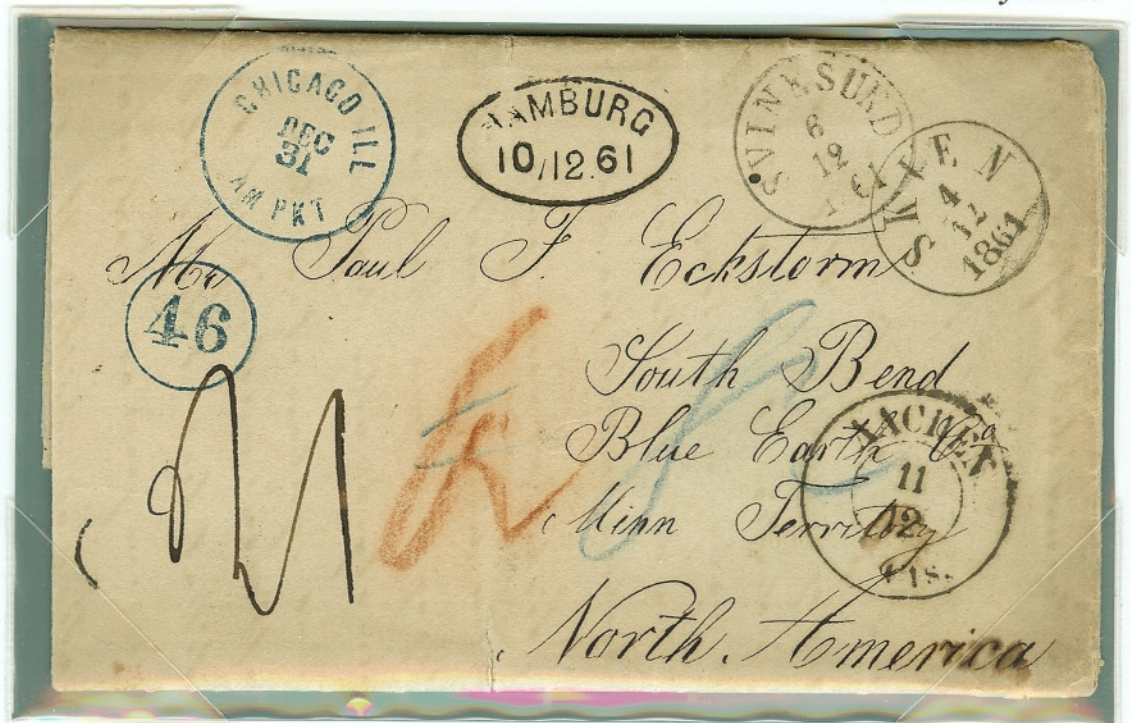 CHICAGO ILL
DEC
31
AM PKT
HAMBURG
10/12.61
SVINESUND
6
12
61
SKIEN
4
12
1861
Mr Paul F. Eckstorm
46
South Bend
Blue Earth Co
Minn Territory
North America
AACHEN
11
12